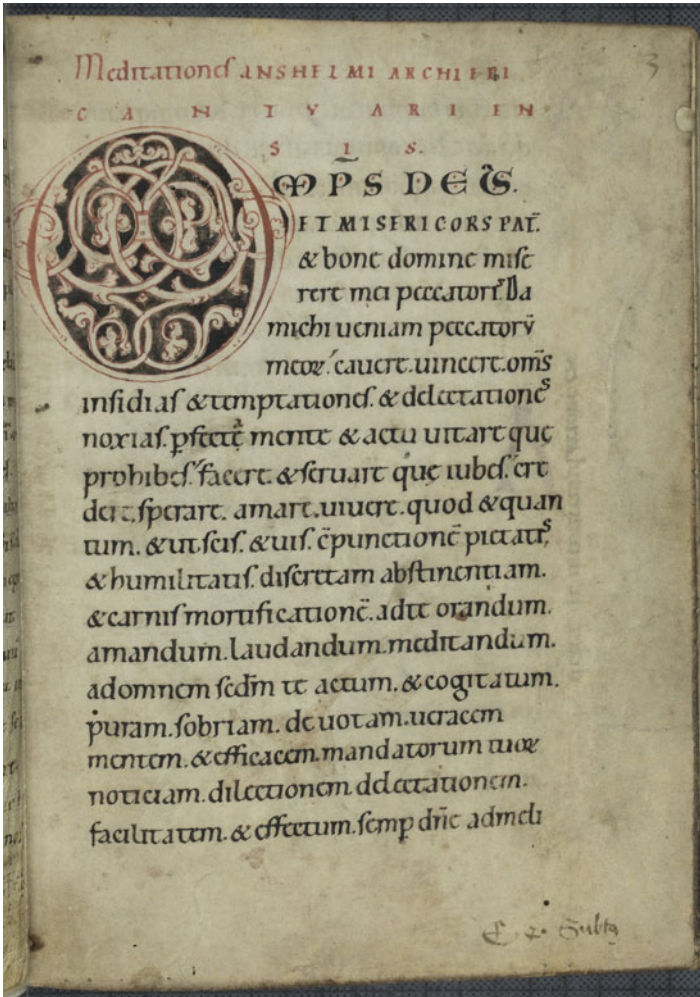 Meditationes ANSHELMI ARCHIEPI
CANTVARIEN
SIS.
3
OMP̄S DEUS.
ET MISERICORS PAT̄.
& bone domine mise
rere mei peccatoris Da
michi ueniam peccatorū
meoꝝ. cauere. uincere. om̄s
insidias & temptationes. & delectationes
noxias. ꝑfecte mente & actu uitare que
prohibes. facere & seruare que iubes. cre
dere sperare. amare. uiuere. quod & quan
tum. & ut scis. & uis. cp̄unctionē pietatis
& humilitatis. discretam abstinentiam.
& carnis mortificationē. ad te orandum.
amandum. laudandum. meditandum.
ad omnem scdm̄ te actum. & cogitatum.
puram. sobriam. deuotam. ueracem
mentem. & efficacem. mandatorum tuoꝝ
noticiam. dilectionem delectationem.
facilitatem. & effectum. semꝑ dn̄e ad meli